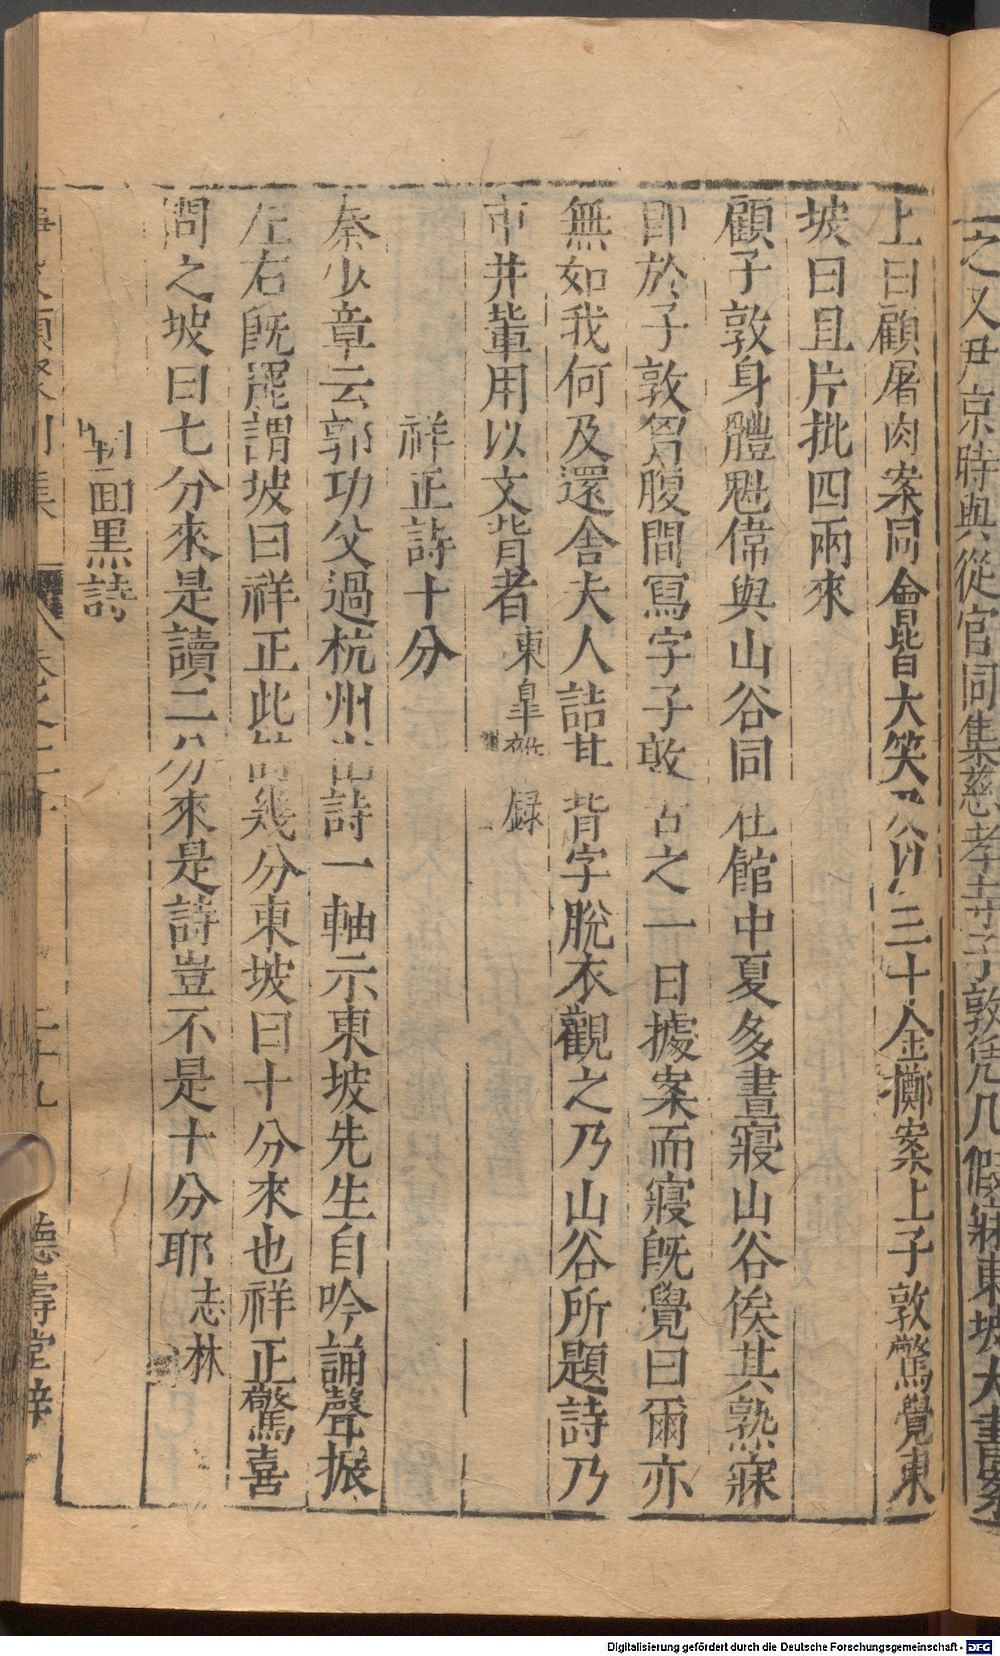 之又尹京時與從官同集慈孝寺子敦凭几假寐東坡大書案
上曰顧屠肉案同會皆大笑又以三十金擲案上子敦驚覺東
坡曰且片批四兩來
顧子敦身體魁偉與山谷同在館中夏多晝寢山谷俟其熟寐
即於子敦胷腹間寫字子敦苦之一日據案而寢既覺曰爾亦
無如我何及還舍夫人詰其背字脫衣觀之乃山谷所題詩乃
市井輩用以文背者東臯雜錄
祥正詩十分
秦少章云郭功父過杭州出詩一軸示東坡先生自吟誦聲振
左右既罷謂坡曰祥正此詩幾分東坡曰十分來也祥正驚喜
問之坡曰七分來是讀二分來是詩豈不是十分耶志林
面黑詩
事文類聚別集 卷之二十 二十九 德壽堂梓
Digitalisierung gefördert durch die Deutsche Forschungsgemeinschaft - DFG